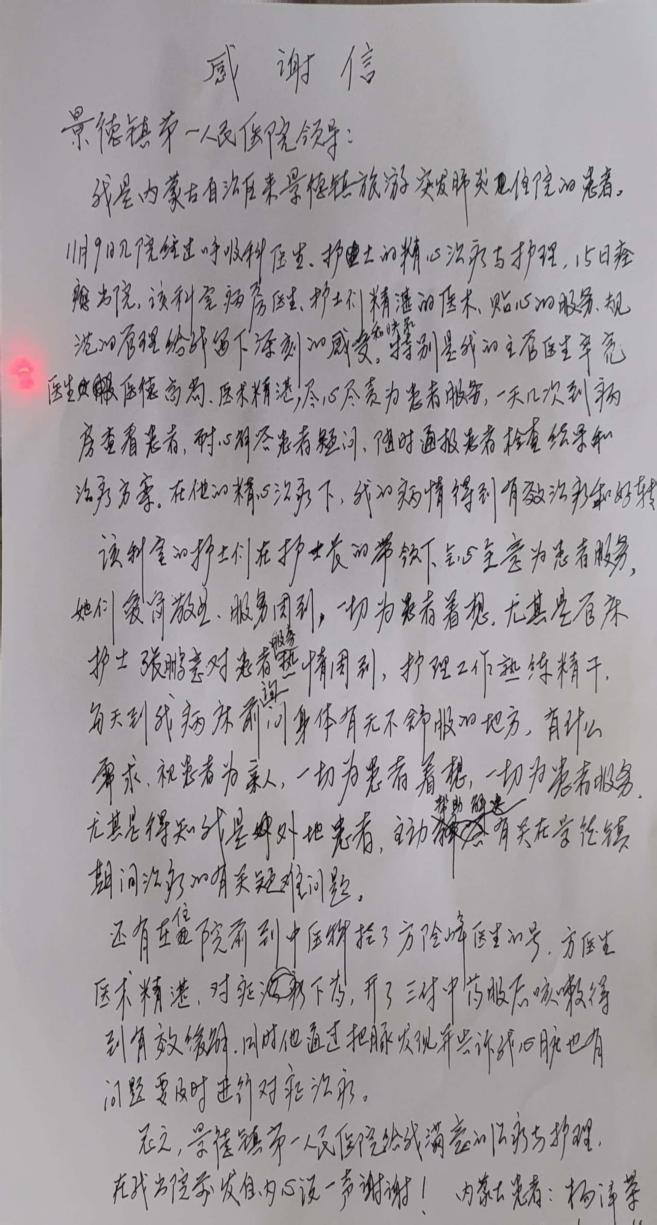 感谢信
景德镇第一人民医院领导:
我是内蒙古自治区来景德镇旅游突发肺炎住院的患者。
11月9日入院经过呼吸科医生、护士的精心治疗与护理,15日痊
愈出院。该科室病房医生、护士们精湛的医术、贴心的服务、规
范的管理给我留下深刻的感受。特别是我的主管医生辛亮
医生医德高尚、医术精湛,尽心尽责为患者服务,一天几次到病
房查看患者,耐心解答患者疑问、随时通报患者检查结果和
治疗方案。在他的精心治疗下,我的病情得到有效治疗和好转
该科室的护士们在护士长的带领下全心全意为患者服务,
她们爱岗敬业、服务周到,一切为患者着想。尤其是管床
护士张鹏意对患者服务热情周到,护理工作熟练精干,
每天到我病床前询问身体有无不舒服的地方,有什么
需求,视患者为亲人,一切为患者着想,一切为患者服务,
尤其是得知我是外地患者,主动帮助解决有关在景德镇
期间治疗的有关疑难问题。
还有在住院前到中医科挂了方险峰医生的号,方医生
医术精湛,对症下药,开了三付中药服后咳嗽得
到有效缓解,同时他通过把脉发现并告诉我心脏也有
问题要及时进行对症治疗。
总之,景德镇第一人民医院给我满意的治疗与护理,
在我出院前发自内心说一声谢谢! 内蒙古患者:杨